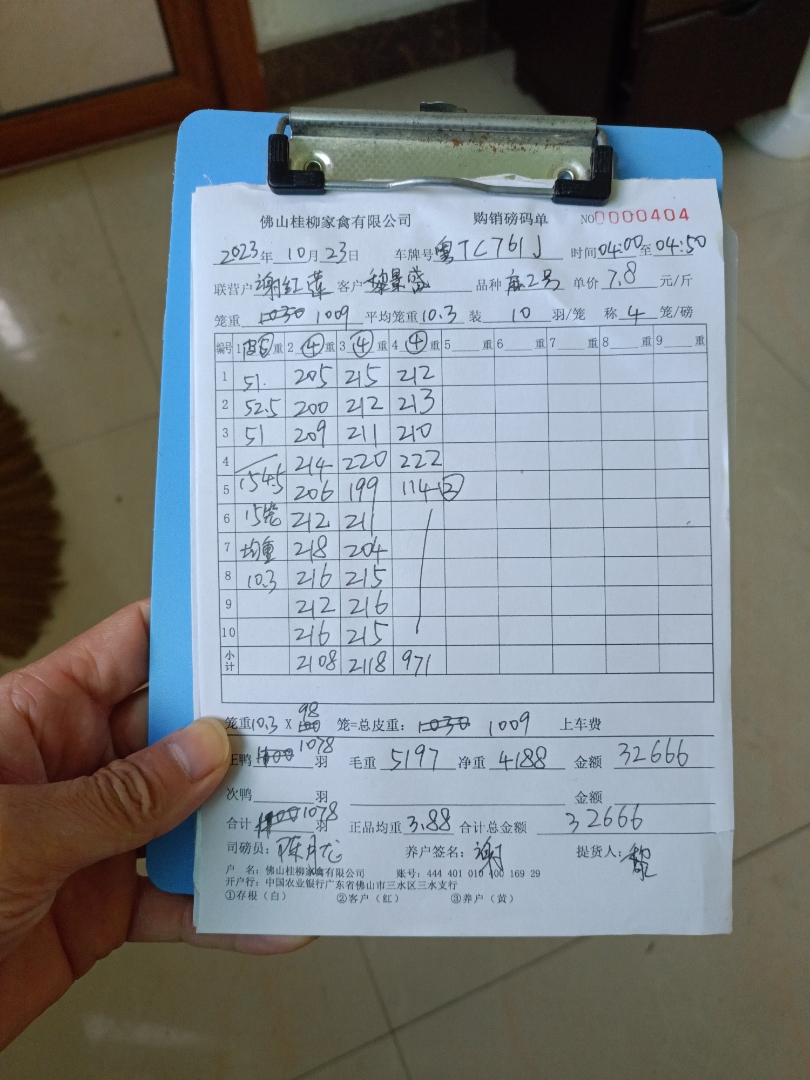 佛山桂柳家禽有限公司 购销磅码单 NO 0000404
2023年 10月 23日 车牌号 粤TC761J 时间 04:00 至 04:50
联营户 谢红莲 客户 黎景盛 品种 麻2号 单价 7.8 元/斤
笼重 1030 1009 平均笼重 10.3 装 10 羽/笼 称 4 笼/磅
编号 1 重 2 ④ 重 3 ④ 重 4 ④ 重 5 重 6 重 7 重 8 重 9 重
1 51. 205 215 212
2 52.5 200 212 213
3 51 209 211 210
4 154.5 214 220 222
5 206 199 114 ②
6 15笼 212 211
7 均重 218 204
8 10.3 216 215
9 212 216
10 216 215
小计 2108 2118 971
笼重 10.3 X 100 98 笼=总皮重: 1030 1009 上车费
正鸭 1100 1078 羽 毛重 5197 净重 4188 金额 32666
次鸭 羽 金额
合计 1100 1078 羽 正品均重 3.88 合计总金额 32666
司磅员: 陈月龙 养户签名: 谢 提货人: 黎
户 名: 佛山桂柳家禽有限公司 账号: 444 401 010 400 169 29
开户行: 中国农业银行广东省佛山市三水区三水支行
①存根（白） ②客户（红） ③养户（黄）